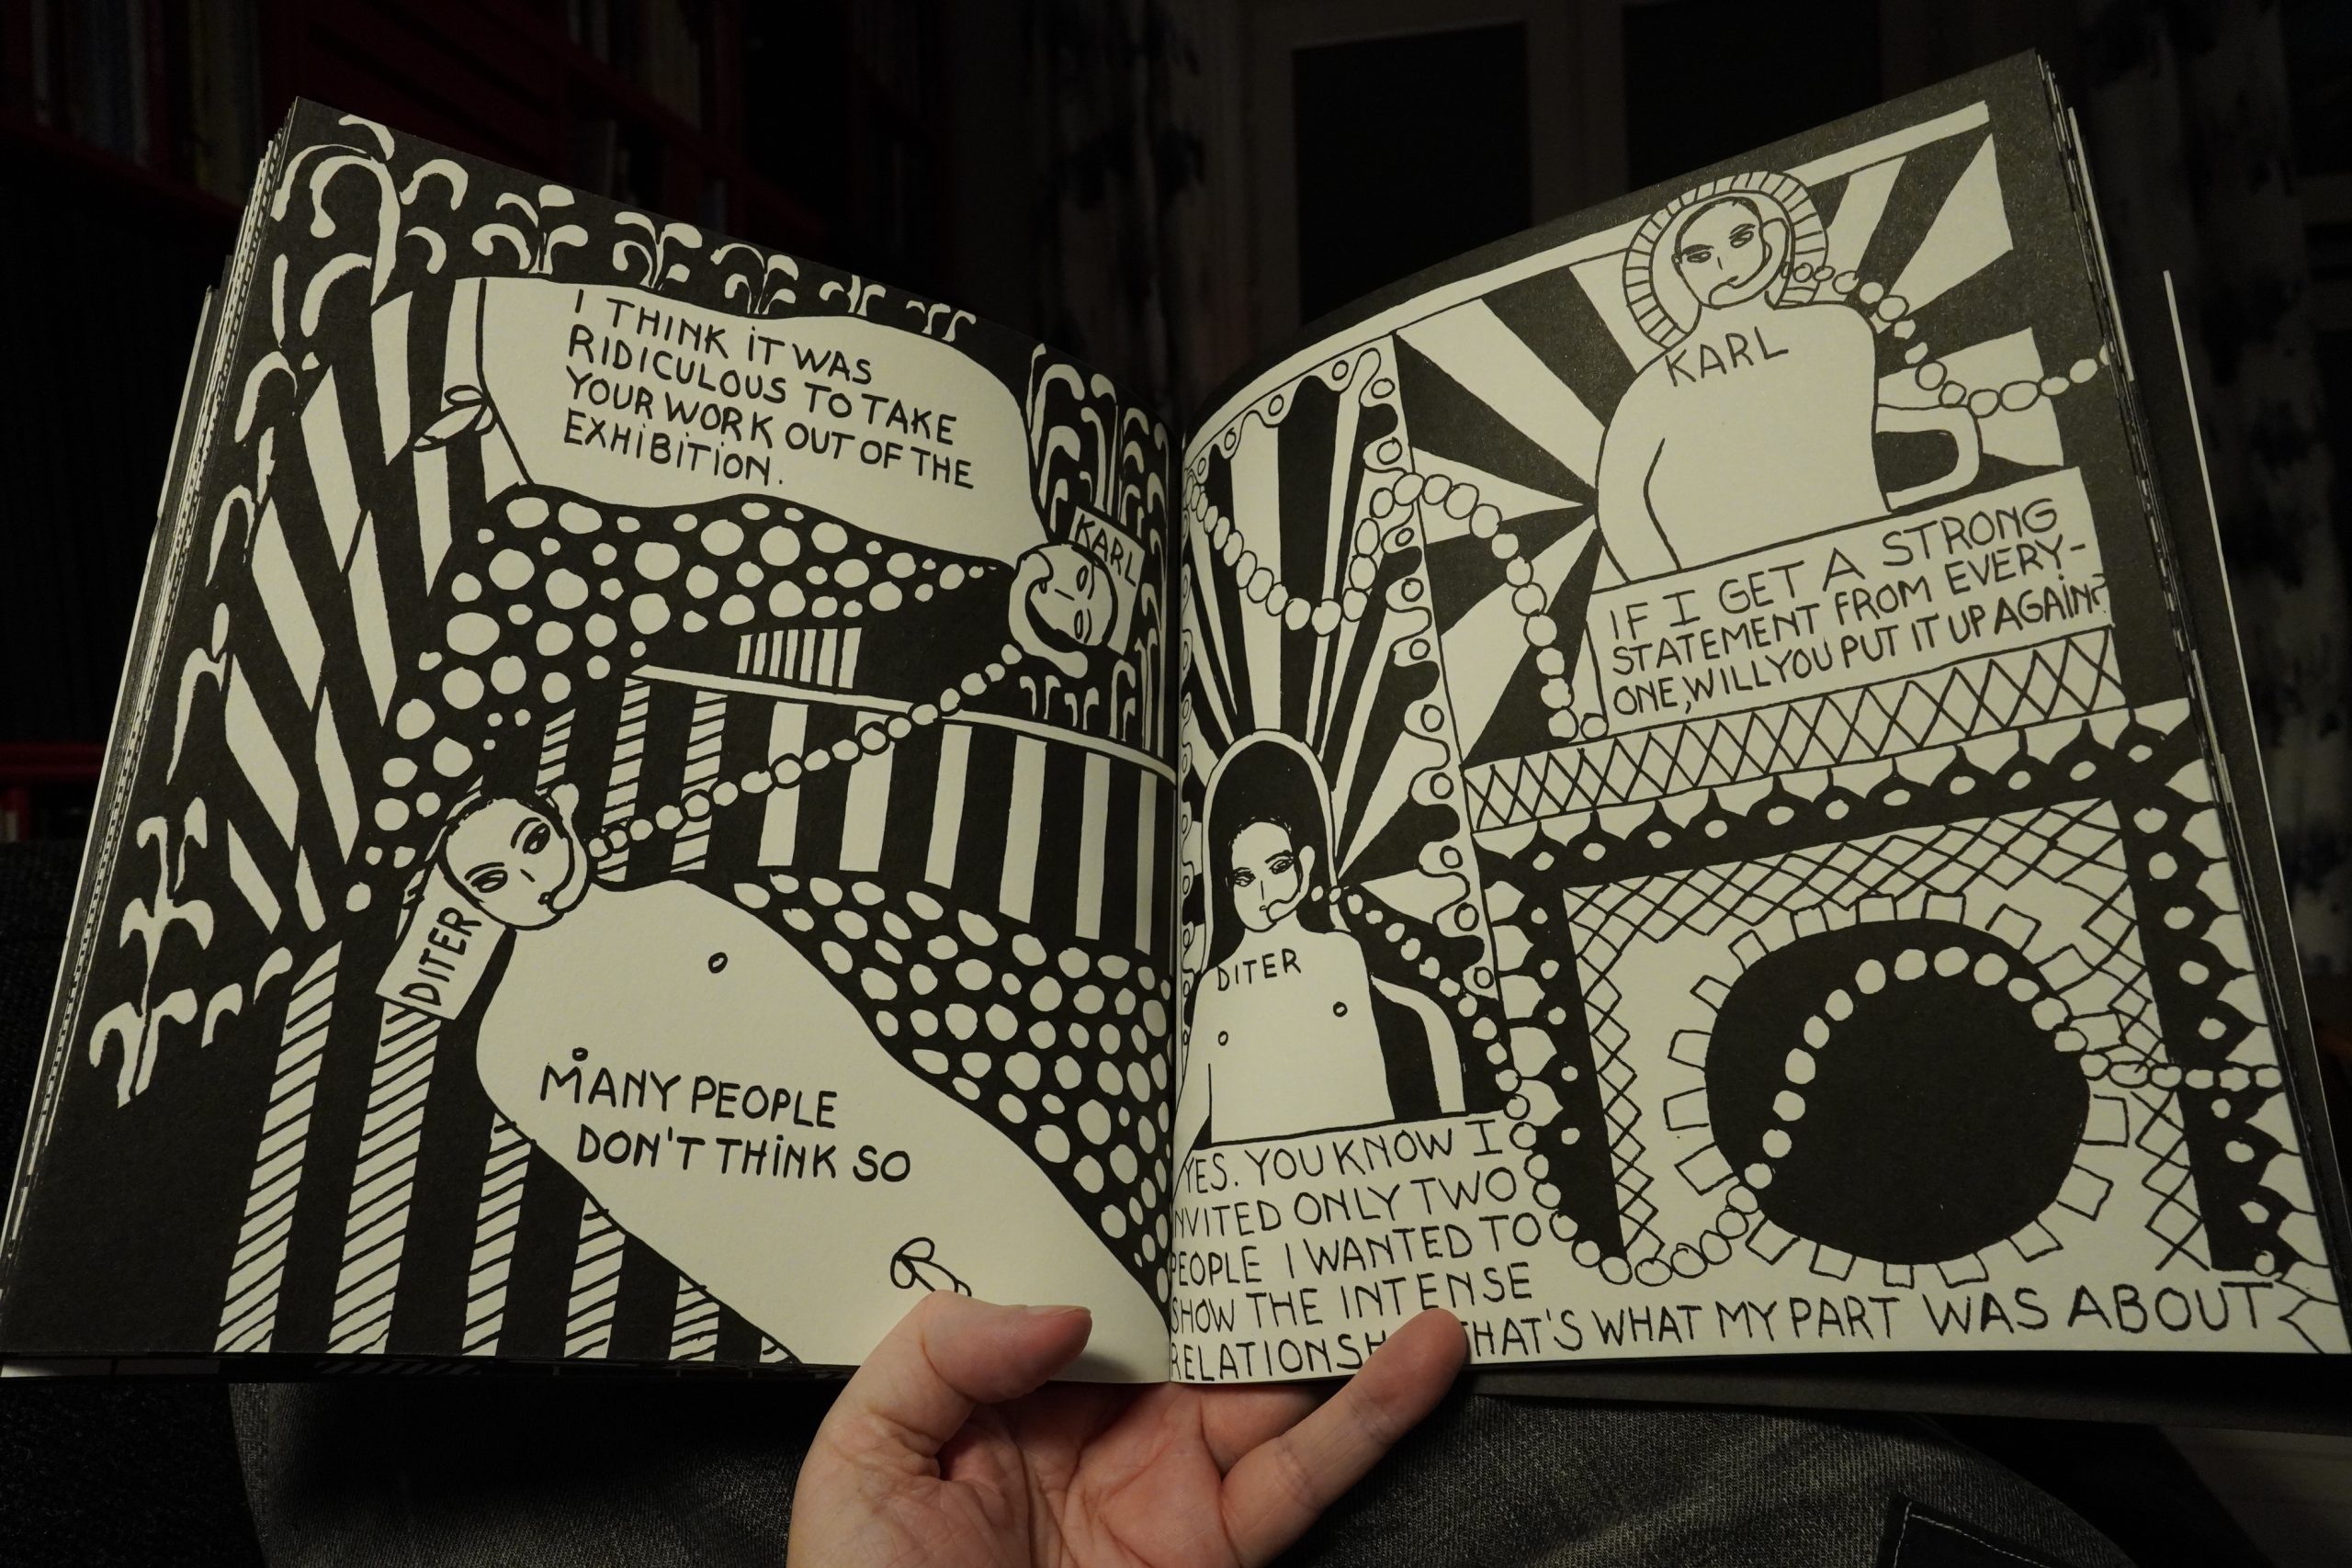 I THINK IT WAS
RIDICULOUS TO TAKE
YOUR WORK OUT OF THE
EXHIBITION.
KARL
DITER
MANY PEOPLE
DON'T THINK SO
KARL
IF I GET A STRONG
STATEMENT FROM EVERY-
ONE, WILL YOU PUT IT UP AGAIN?
DITER
YES. YOU KNOW I
NVITED ONLY TWO
PEOPLE I WANTED TO
SHOW THE INTENSE
RELATIONSH THAT'S WHAT MY PART WAS ABOUT